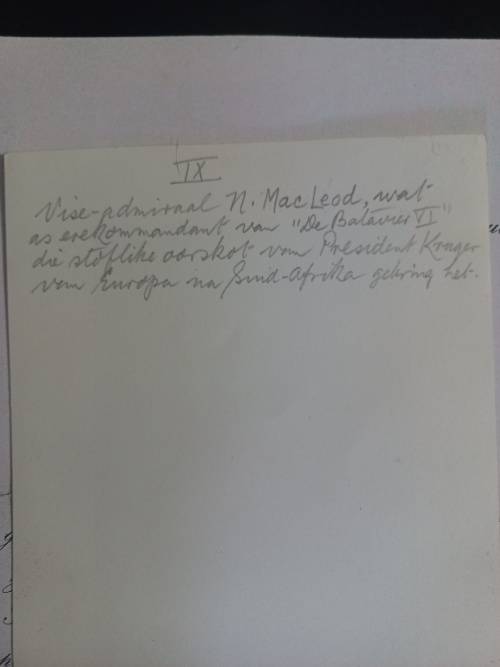 IX
Vise-admiraal N. MacLeod, wat
as erekommandant van "De Batavier VI"
die stoflike oorskot van President Kruger
van Europa na Suid-Afrika gebring het.